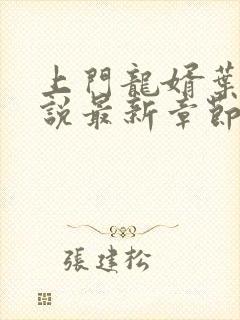 上門龍婿葉
說最新章節
張建松